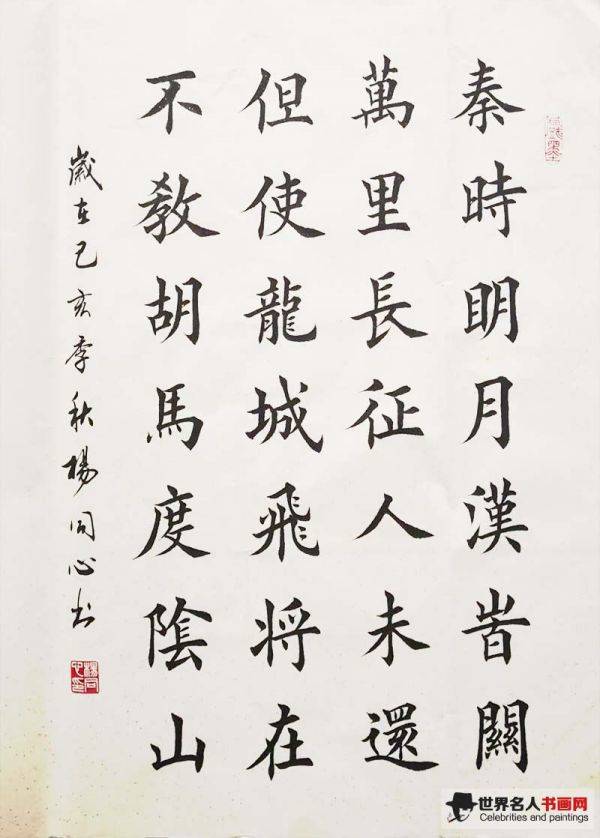 秦時明月漢旹關
萬里長征人未還
但使龍城飛将在
不教胡馬度陰山
歲在己亥季秋楊同心书
楊同心印
世界名人书画网
Celebrities and paintings